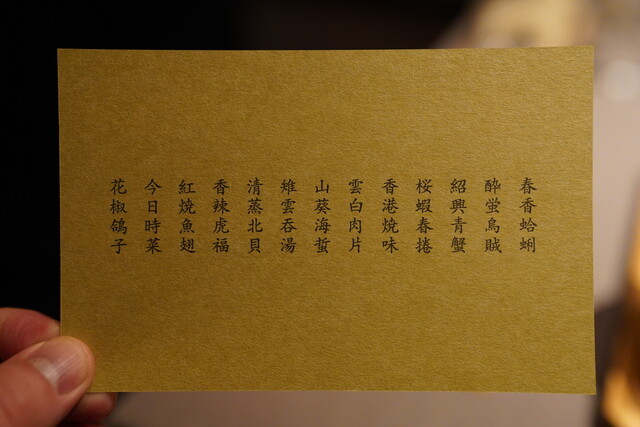 春香蛤蜊
酔蛍烏賊
紹興青蟹
桜蝦春捲
香港焼味
雲白肉片
山葵海蜇
雉雲呑湯
清蒸北貝
香辣虎福
紅焼魚翅
今日時菜
花椒鴿子